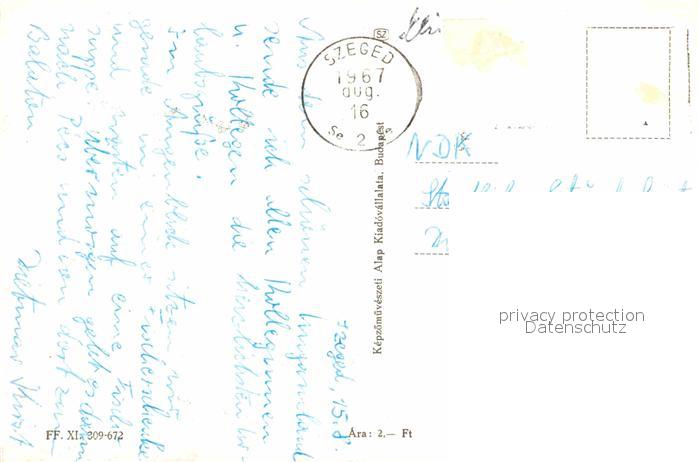 Szeged, 15.8.
Aus dem schönen Ungarnland
sende ich allen Kolleginnen
u. Kollegen die herzlichsten Ur-
laubsgrüße.
Im Augenblick sitzen wir
gerade in einer Fischerschenke
und warten auf eine Fisch-
suppe. Übermorgen geht es dann
nach Pecs und von dort zum
Balaton.
Dietmar
FF. XI. 309-672
Ára: 2,— Ft
Képzőművészeti Alap Kiadóvállalata, Budapest
SZ
SZEGED
1967
aug.
16
2
NDK
privacy protection
Datenschutz